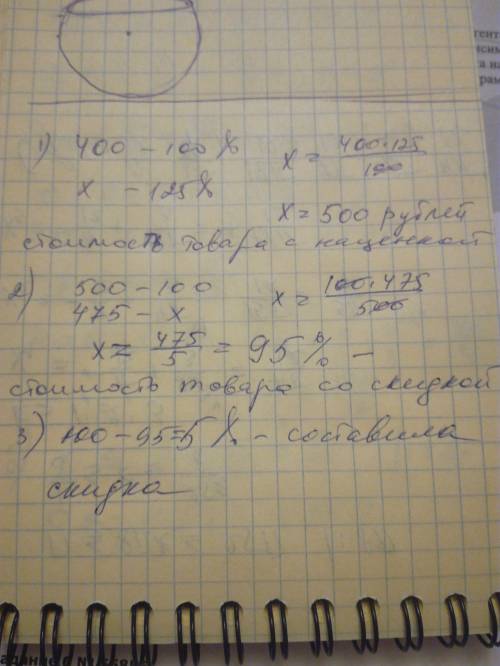 1) 400 – 100 %
x = 400·125 / 100
x – 125 %
x = 500 рублей
стоимость товара с наценкой
2) 500 – 100
475 – x
x = 100·475 / 500
x = 475 / 5 = 95 % –
стоимость товара со скидкой
3) 100 – 95 = 5 % – составила
скидка